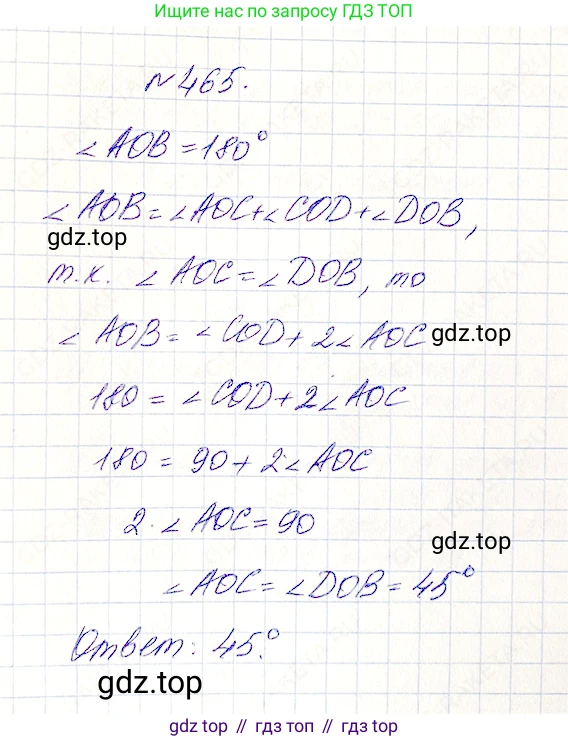 Ищите ответы по запросу ГДЗ ТОП
№465.
∠AOB = 180°
∠AOB = ∠AOC + ∠COD + ∠DOB,
gdz.top
т.к. ∠AOC = ∠DOB, то
∠AOB = ∠COD + 2∠AOC
gdz.top
180 = ∠COD + 2∠AOC
180 = 90 + 2·∠AOC
2·∠AOC = 90
gdz.top
∠AOC = ∠DOB = 45°
Ответ: 45°.
gdz.top
gdz.top // гдз топ // гдз.топ